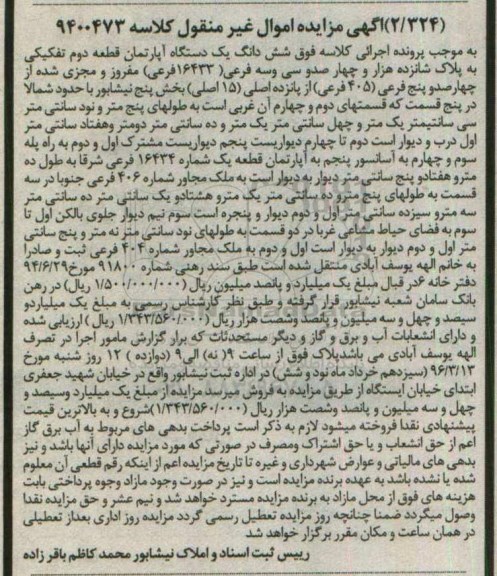 (۲/۳۲۴)آگهی مزایده اموال غیر منقول کلاسه ۹۴۰۰۴۷۳
به موجب پرونده اجرائی کلاسه فوق شش دانگ یک دستگاه آپارتمان قطعه دوم تفکیکی
به پلاک شانزده هزار و چهار صدو سی وسه فرعی( ۱۶۴۳۳فرعی) مفروز و مجزی شده از
چهارصدو پنج فرعی (۴۰۵ فرعی) از پانزده اصلی (۱۵ اصلی) بخش پنج نیشابور با حدود شمالا
در پنج قسمت که قسمتهای دوم و چهارم آن غربی است به طولهای پنج متر و نود سانتی متر
سی سانتیمتر یک متر و چهل سانتی متر یک متر و ده سانتی متر دومتر وهفتاد سانتی متر
اول درب و دیوار است دوم تا چهارم دیواریست پنجم دیواریست مشترک اول و دوم به راه پله
سوم و چهارم به آسانسور پنجم به آپارتمان قطعه یک شماره ۱۶۴۳۴ فرعی شرقا به طول ده
مترو هفتادو پنج سانتی متر دیوار به دیوار است به ملک مجاور شماره ۴۰۶ فرعی جنوبا در سه
قسمت به طولهای پنج مترو ده سانتی متر یک مترو هشتادو یک سانتی متر ده سانتی متر
سه مترو سیزده سانتی متر اول و دوم دیوار و پنجره است سوم نیم دیوار جلوی بالکن اول تا
سوم به فضای حیاط مشاعی غربا در دو قسمت به طولهای نود سانتی متر نه متر و پنج سانتی
متر اول و دوم دیوار به دیوار است اول و دوم به ملک مجاور شماره ۴۰۴ فرعی ثبت و صادرا
به خانم الهه یوسف آبادی منتقل شده است طبق سند رهنی شماره ۹۱۸۰۰ مورخ۹۴/۶/۲۹
دفتر خانه ۶در قبال مبلغ یک میلیارد و پانصد میلیون ریال (۱/۵۰۰/۰۰۰/۰۰۰ ریال) در رهن
بانک سامان شعبه نیشابور قرار گرفته و طبق نظر کارشناس رسمی به مبلغ یک میلیاردو
سیصد و چهل و سه میلیون و پانصد وشصت هزار ریال (۱/۳۴۳/۵۶۰/۰۰۰ ریال ) ارزیابی شده
و دارای انشعابات آب و برق و گاز و دیگر مستحدثات که برابر گزارش مامور اجرا در تصرف
الهه یوسف آبادی می باشدپلاک فوق از ساعت ۹( نه) الی۹ (دوازده ) ۱۲ روز شنبه مورخ
۹۶/۳/۱۳ (سیزدهم خرداد ماه نود و شش) در اداره ثبت نیشابور واقع در خیابان شهید جعفری
ابتدای خیابان ایستگاه از طریق مزایده به فروش میرسد مزایده از مبلغ یک میلیارد وسیصد و
چهل و سه میلیون و پانصد وشصت هزار ریال (۱/۳۴۳/۵۶۰/۰۰۰)شروع و به بالاترین قیمت
پیشنهادی نقدا فروخته میشود لازم به ذکر است پرداخت بدهی های مربوط به آب برق گاز
اعم از حق انشعاب و یا حق اشتراک ومصرف در صورتی که مورد مزایده دارای آنها باشد و نیز
بدهی های مالیاتی و عوارض شهرداری و غیره تا تاریخ مزایده اعم از اینکه رقم قطعی آن معلوم
شده یا نشده باشد به عهده برنده مزایده است و نیز در صورت وجود مازاد وجوه پرداختی بابت
هزینه های فوق از محل مازاد به برنده مزایده مسترد خواهد شد و نیم عشر و حق مزایده نقدا
وصول میگردد ضمنا چنانچه روز مزایده تعطیل رسمی گردد مزایده روز اداری بعداز تعطیلی
در همان ساعت و مکان مقرر برگزار خواهد شد
رییس ثبت اسناد و املاک نیشابور محمد کاظم باقر زاده